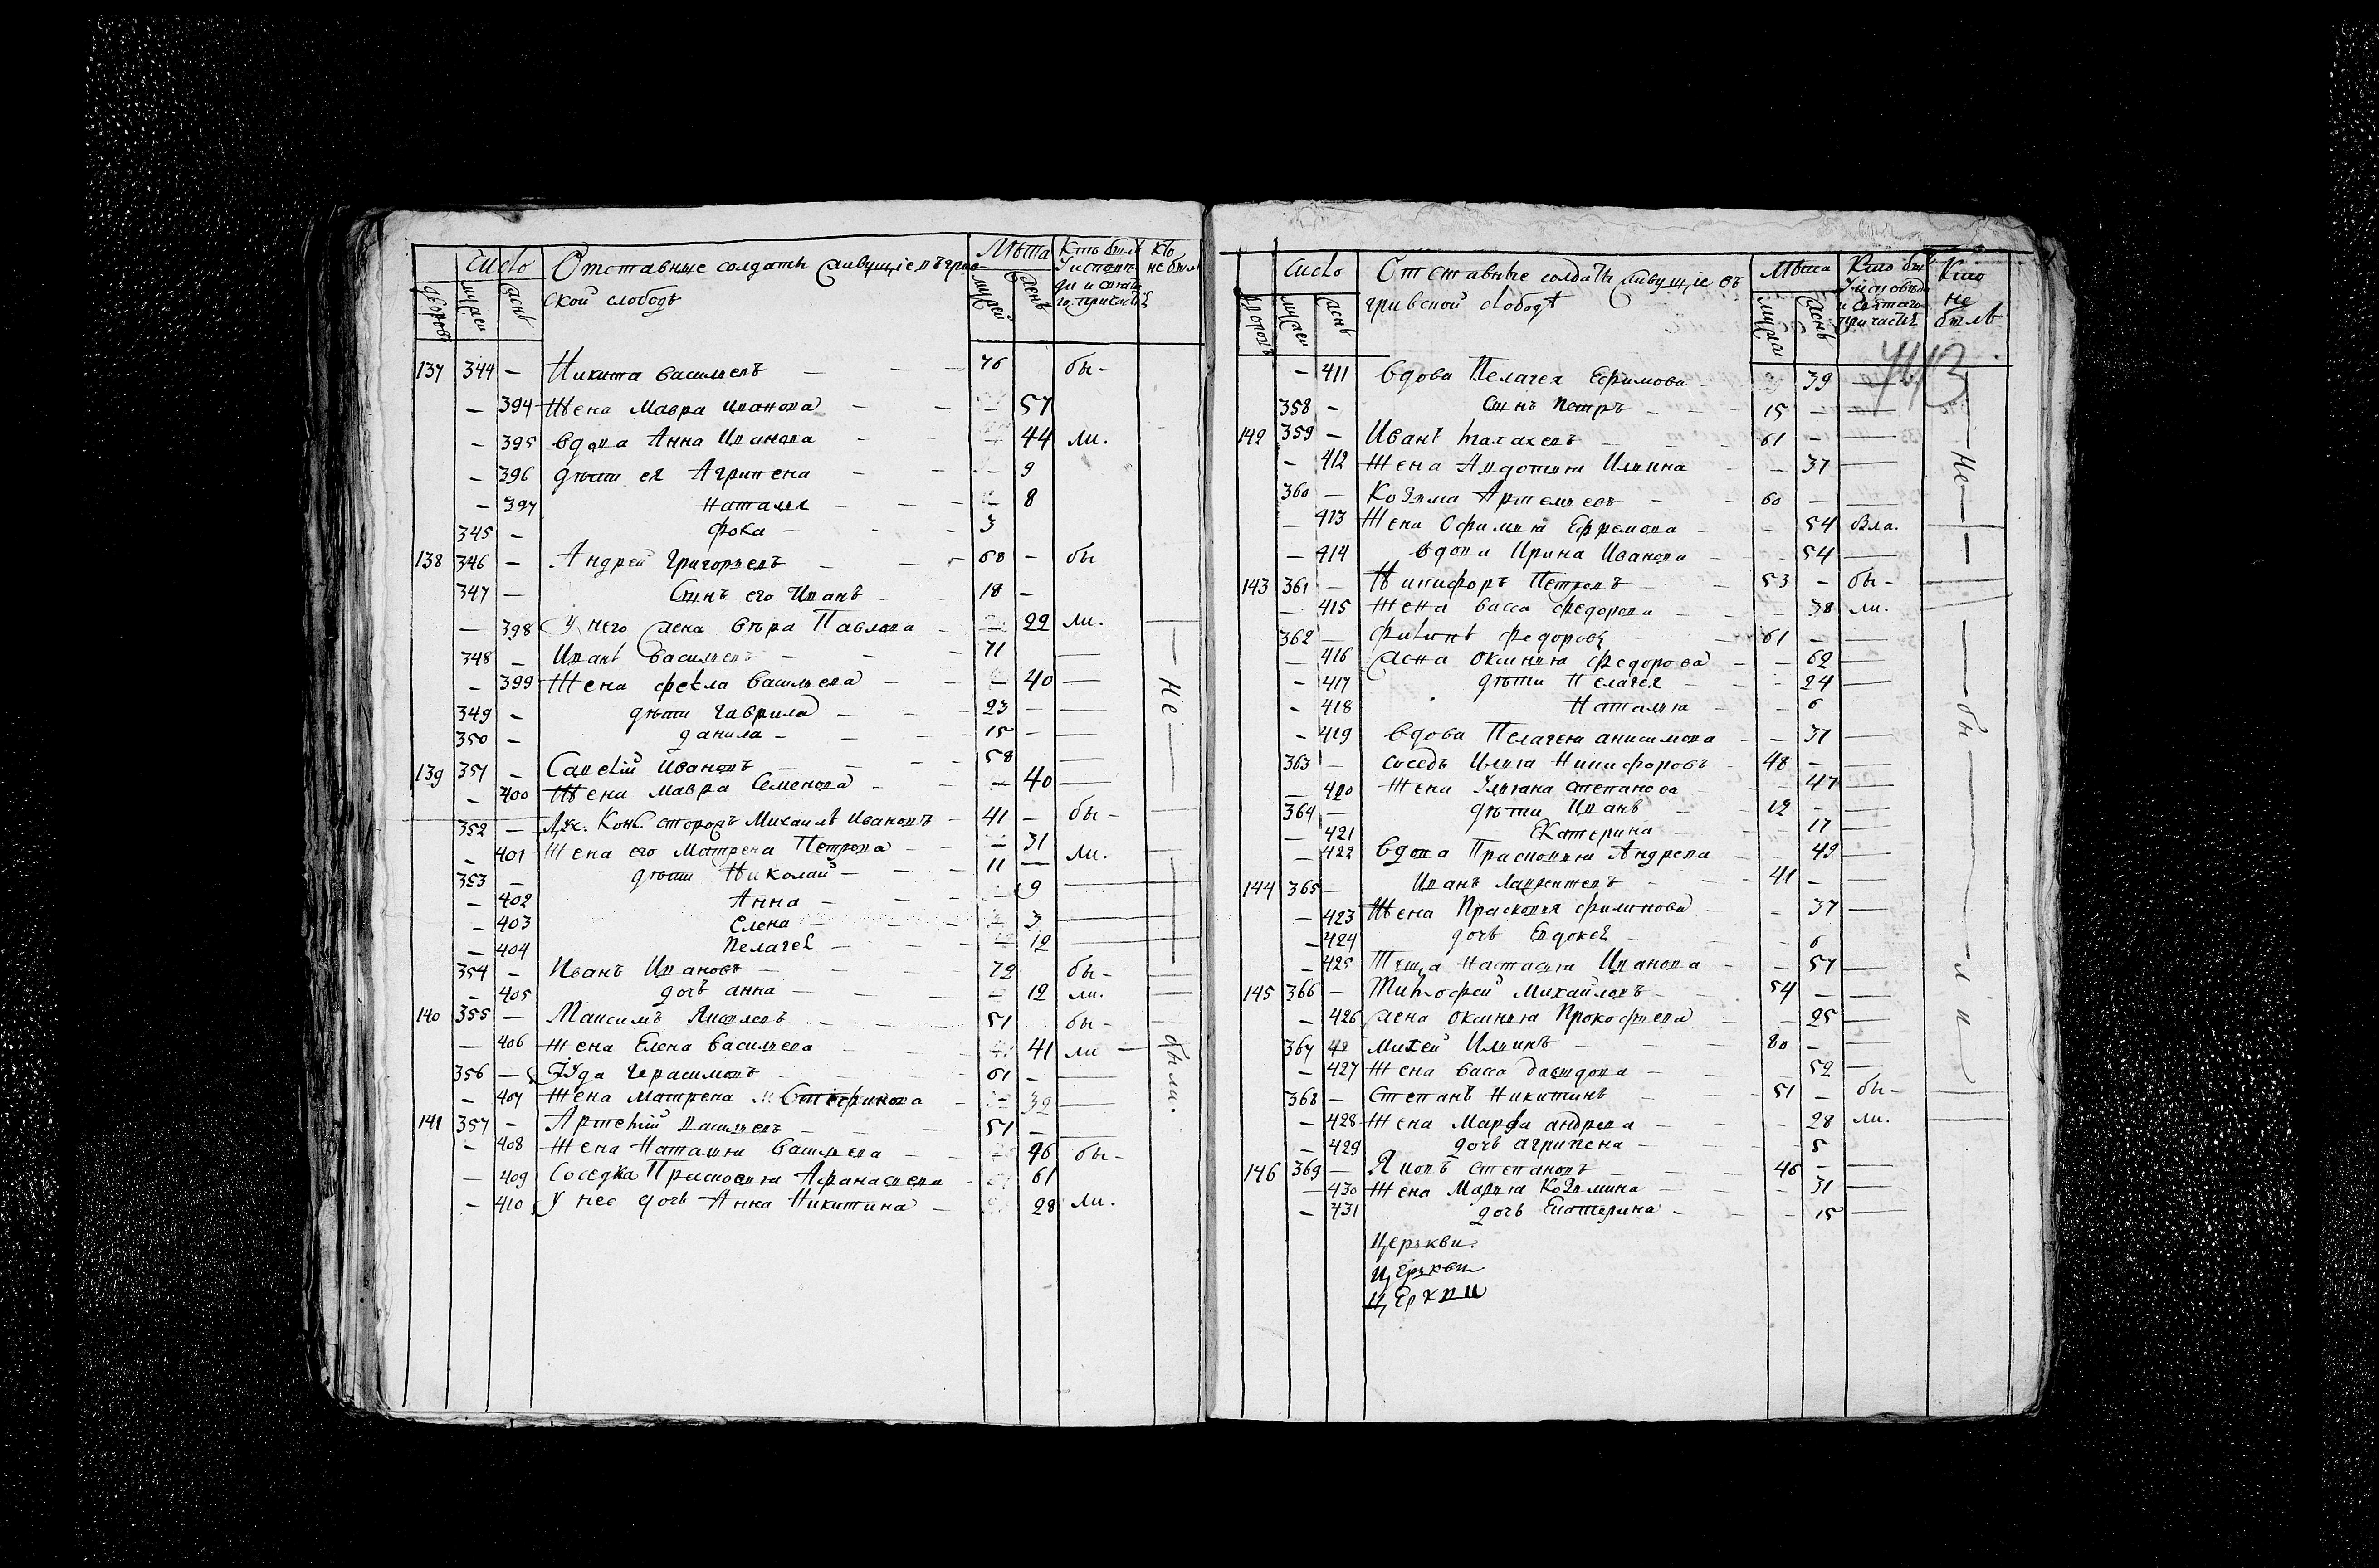 Число Отставные солдаты живущіе въ грив Лѣта Кто былъ кто
ской слободѣ у исповѣ не былъ
дворовъ мужей женъ мужей женъ ди и свята
го причастія
137 344 – Никита Васильевъ – 76 бы-
– 394 Жена Мавра Иванова – 57
– 395 вдова Анна Иванова – 44 ли.
– 396 дѣти ея Агрипена – 9
– 397 Наталья – 8
345 – Фока – 3
138 346 – Андрей Григорьевъ – 68 – бы
347 – Сынъ его Иванъ 18 –
– 398 У него жена Вѣра Павлова – 22 ли.
348 – Иванъ Васильевъ – 71 —
– 399 Жена Фекла Васильева – 40 —
349 – дѣти Гаврила – 23 – —
350 – Данила – 15 – —
139 351 – Савелій Ивановъ – 58 —
– 400 Жена Мавра Семенова – 40 —
352 – сторожъ Михаилъ Ивановъ – 41 – бы-
– 401 Жена его Матрена Петрова – 31 ли.
353 – дѣти Николай – 11 —
– 402 Анна – 9
– 403 Елена – 3
– 404 Пелагея – 12
354 – Иванъ Ивановъ – 72 бы-
– 405 дочь Анна – 12 ли.
140 355 – Максимъ Яковлевъ – 51 бы-
– 406 Жена Елена Васильева – 41 ли —
356 – Іуда Герасимовъ – 61 – —
– 407 Жена Матрена Стефанова – 39 —
141 357 – Артемій Васильевъ – 51 – —
– 408 Жена Наталья Васильева – 46 бы-
– 409 Соседка Прасковья Афанасьева – 61
– 410 У нее дочь Анна Никитина – 28 ли.
Не
были.
Число Отставные солдаты живущіе въ Лѣта Кто былъ Кто
гривской слободѣ у исповѣди не
дворовъ мужей женъ мужей женъ и святаго былъ
причастія
443
– 411 вдова Пелагея Ефимова – 39 —
358 – Сынъ Петръ – 15 – —
142 359 – Иванъ – 61 – —
– 412 Жена Авдотья Ильина – 37 —
360 – Козьма Артемьевъ – 60 – —
– 413 Жена Офимья Ефремова – 54 Бла.
– 414 вдова Ирина Иванова – 54 —
143 361 – Никифоръ Петровъ – 53 – бы-
– 415 Жена Васса Федорова – 38 ли.
362 – Филипъ Федоровъ – 61 – —
– 416 Жена Оксинья Федорова – 62 —
– 417 дѣти Пелагея – 24 —
– 418 Наталья – 6
– 419 вдова Пелагея Анисимова – 37 —
363 – соседъ Илья Никифоровъ – 48 – —
– 420 Жена Ульяна Степанова – 47 —
364 – дѣти Иванъ – 12 – —
– 421 Екатерина – 17 —
– 422 вдова Прасковья Андреева – 49 —
144 365 – Иванъ Лаврентьевъ – 41 – —
– 423 Жена Прасковья Филипова – 37 —
– 424 дочь Евдокея – 6
– 425 Тъща Настасья Иванова – 57 —
145 366 – Тимофей Михайловъ – 54 – —
– 426 Жена Оксинья Прокофьева – 25 —
367 Михей Ильинъ – 80 – —
– 427 Жена Васса Давыдова – 52 —
368 – Степанъ Никитинъ – 51 – бы-
– 428 Жена Марфа Андреева – 28 ли.
– 429 дочь Агрипена – 5
146 369 – Яковъ Степановъ – 46 – —
– 430 Жена Марья Козьмина – 31 —
– 431 дочь Екатерина – 15 —
Не
бы
ли
Церькви.
Церькви
Церкви